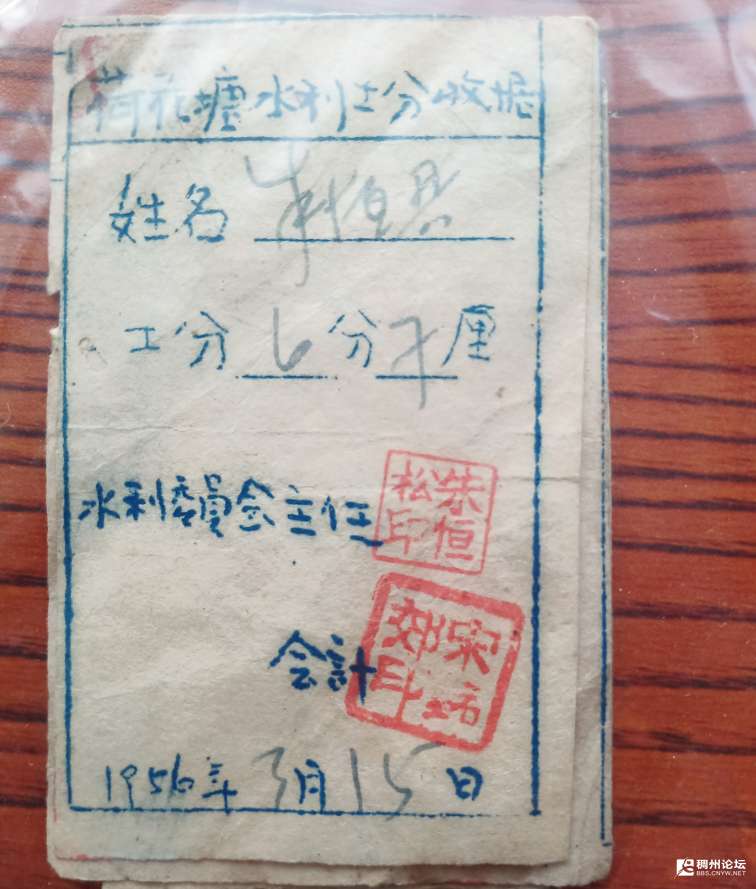 荷花塘水利工分收据
姓名 朱恒
工分 6 分 7 厘
水利委員会主任
朱恒松印
会計
宋
印
1956年3月15日
稠州论坛
BBS.CNYW.NET